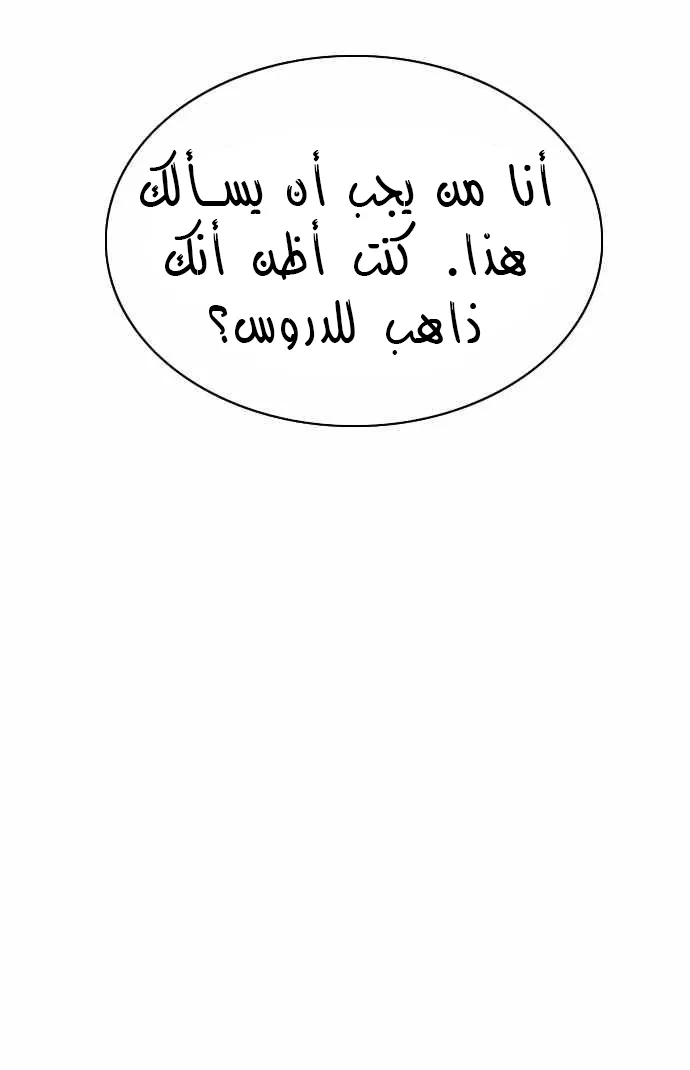 أنا من يجب أن يسـألك
هذا. كنت أظن أنك
ذاهب للدروس؟